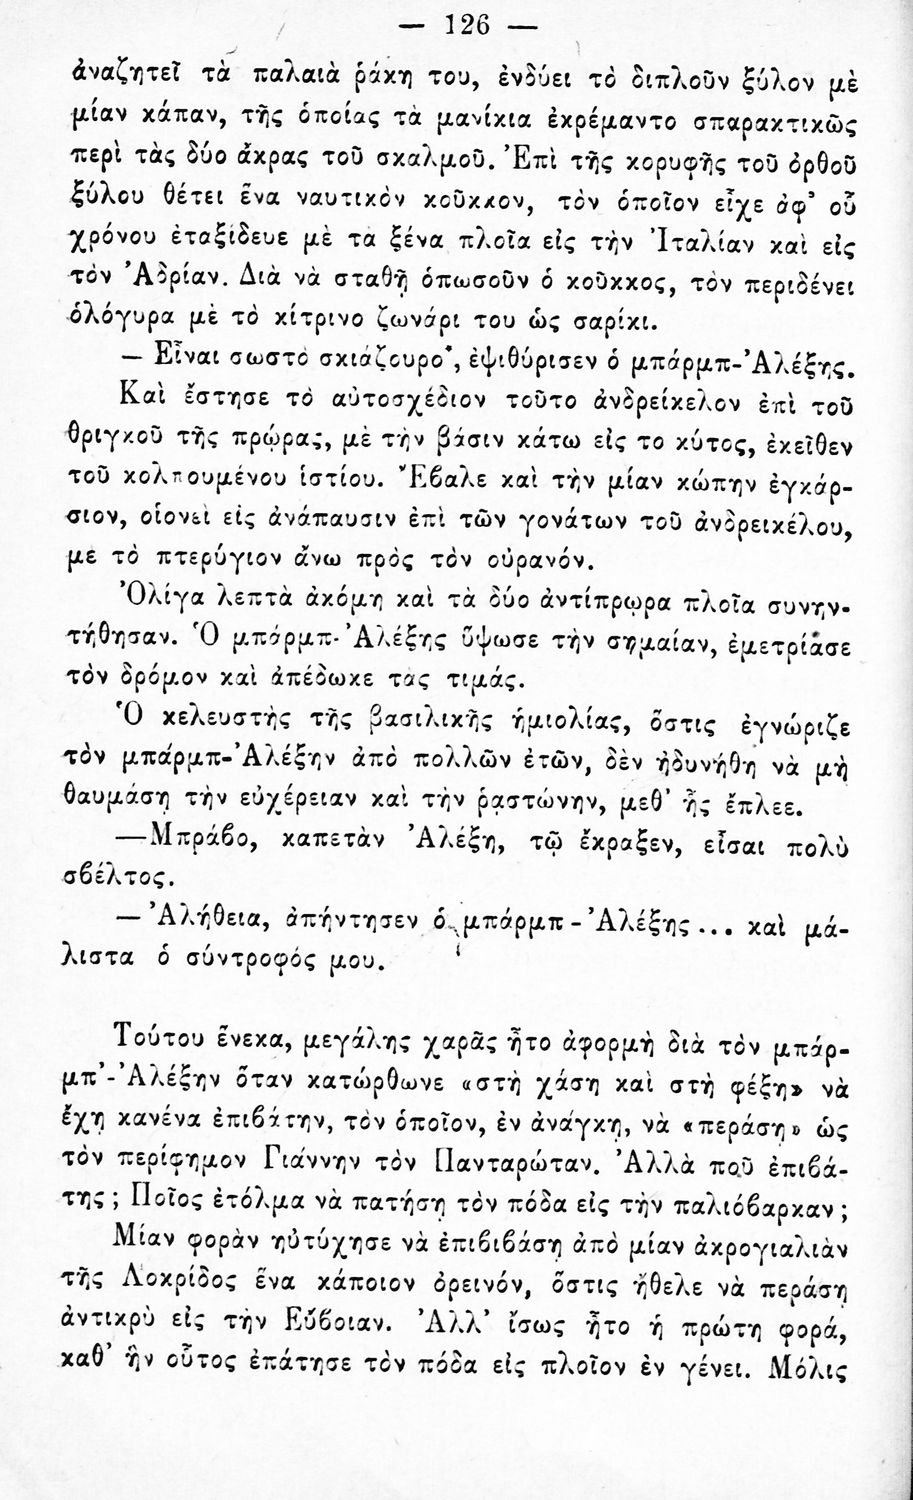 — 126 —
ἀναζητεῖ τὰ παλαιὰ ῥάκη του, ἐνδύει τὸ διπλοῦν ξύλον μὲ
μίαν κάπαν, τῆς ὁποίας τὰ μανίκια ἐκρέμαντο σπαρακτικῶς
περὶ τὰς δύο ἄκρας τοῦ σκαλμοῦ. Ἐπὶ τῆς κορυφῆς τοῦ ὀρθοῦ
ξύλου θέτει ἕνα ναυτικὸν κοῦκκον, τὸν ὁποῖον εἶχε ἀφ' οὗ
χρόνου ἐταξίδευε μὲ τὰ ξένα πλοῖα εἰς τὴν Ἰταλίαν καὶ εἰς
τὸν Ἀδρίαν. Διὰ νὰ σταθῇ ὁπωσοῦν ὁ κοῦκκος, τὸν περιδένει
ὁλόγυρα μὲ τὸ κίτρινο ζωνάρι του ὡς σαρίκι.
— Εἶναι σωστὸ σκιάζουρο*, ἐψιθύρισεν ὁ μπάρμπ-Ἀλέξης.
Καὶ ἔστησε τὸ αὐτοσχέδιον τοῦτο ἀνδρείκελον ἐπὶ τοῦ
θριγκοῦ τῆς πρῴρας, μὲ τὴν βάσιν κάτω εἰς το κύτος, ἐκεῖθεν
τοῦ κολπουμένου ἱστίου. Ἔβαλε καὶ τὴν μίαν κώπην ἐγκάρ-
σιον, οἱονεὶ εἰς ἀνάπαυσιν ἐπὶ τῶν γονάτων τοῦ ἀνδρεικέλου,
με τὸ πτερύγιον ἄνω πρὸς τὸν οὐρανόν.
Ὀλίγα λεπτὰ ἀκόμη καὶ τὰ δύο ἀντίπρῳρα πλοῖα συνην-
τήθησαν. Ὁ μπάρμπ-Ἀλέξης ὕψωσε τὴν σημαίαν, ἐμετρίασε
τὸν δρόμον καὶ ἀπέδωκε τὰς τιμάς.
Ὁ κελευστὴς τῆς βασιλικῆς ἡμιολίας, ὅστις ἐγνώριζε
τὸν μπάρμπ-Ἀλέξην ἀπὸ πολλῶν ἐτῶν, δὲν ἠδυνήθη νὰ μὴ
θαυμάσῃ τὴν εὐχέρειαν καὶ τὴν ῥᾳστώνην, μεθ' ἧς ἔπλεε.
—Μπράβο, καπετὰν Ἀλέξη, τῷ ἔκραξεν, εἶσαι πολὺ
σβέλτος.
—Ἀλήθεια, ἀπήντησεν ὁ μπάρμπ-Ἀλέξης... καὶ μά-
λιστα ὁ σύντροφός μου.
Τούτου ἕνεκα, μεγάλης χαρᾶς ἦτο ἀφορμὴ διὰ τὸν μπάρ-
μπ'-Ἀλέξην ὅταν κατώρθωνε «στὴ χάση καὶ στὴ φέξη» νὰ
ἔχῃ κανένα ἐπιβάτην, τὸν ὁποῖον, ἐν ἀνάγκῃ, νὰ «περάσῃ» ὡς
τὸν περίφημον Γιάννην τὸν Πανταρώταν. Ἀλλὰ ποῦ ἐπιβά-
της; Ποῖος ἐτόλμα νὰ πατήσῃ τὸν πόδα εἰς τὴν παλιόβαρκαν;
Μίαν φορὰν ηὐτύχησε νὰ ἐπιβιβάσῃ ἀπὸ μίαν ἀκρογιαλιὰν
τῆς Λοκρίδος ἕνα κάποιον ὀρεινόν, ὅστις ἤθελε νὰ περάσῃ
ἀντικρὺ εἰς τὴν Εὔβοιαν. Ἀλλ' ἴσως ἦτο ἡ πρώτη φορά,
καθ' ἣν οὗτος ἐπάτησε τὸν πόδα εἰς πλοῖον ἐν γένει. Μόλις